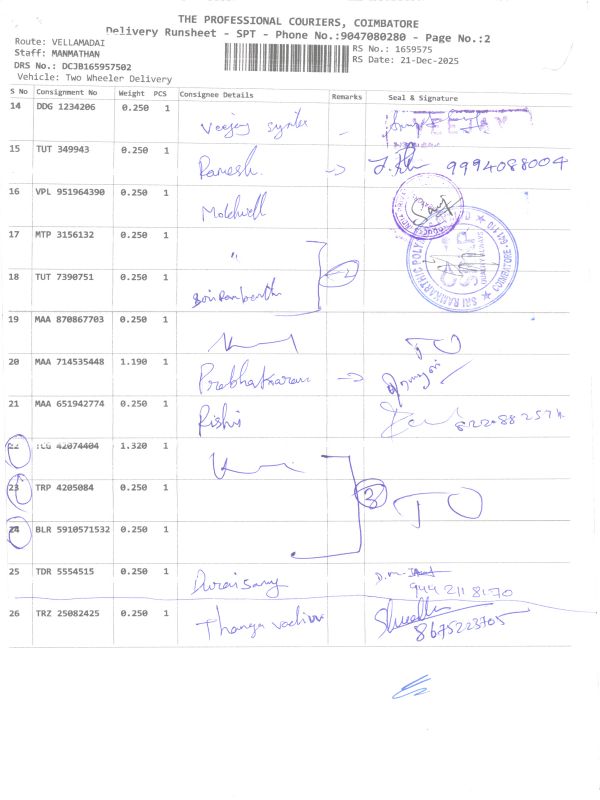 THE PROFESSIONAL COURIERS, COIMBATORE
Delivery Runsheet - SPT - Phone No.:9047080280 - Page No.:2
Route: VELLAMADAI
Staff: MANMATHAN
DRS No.: DCJB165957502
Vehicle: Two Wheeler Delivery
RS No.: 1659575
RS Date: 21-Dec-2025
S No Consignment No Weight PCS Consignee Details Remarks Seal & Signature
14 DDG 1234206 0.250 1 VEEJAY
15 TUT 349943 0.250 1 Ramesh. 9994088004
16 VPL 951964390 0.250 1 Moldwell
17 MTP 3156132 0.250 1 "
18 TUT 7390751 0.250 1 2
SRI RAMKARTHIC POLY
COIMBATORE - 641 110
19 MAA 870867703 0.250 1 TO
20 MAA 714535448 1.190 1 Prabhakaran
21 MAA 651942774 0.250 1 Rishi
22 42074404 1.320 1
23 TRP 4205084 0.250 1 3 TO
24 BLR 5910571532 0.250 1
25 TDR 5554515 0.250 1 Duraisamy 944 211 8170
26 TRZ 25082425 0.250 1 Thanga 8675223705